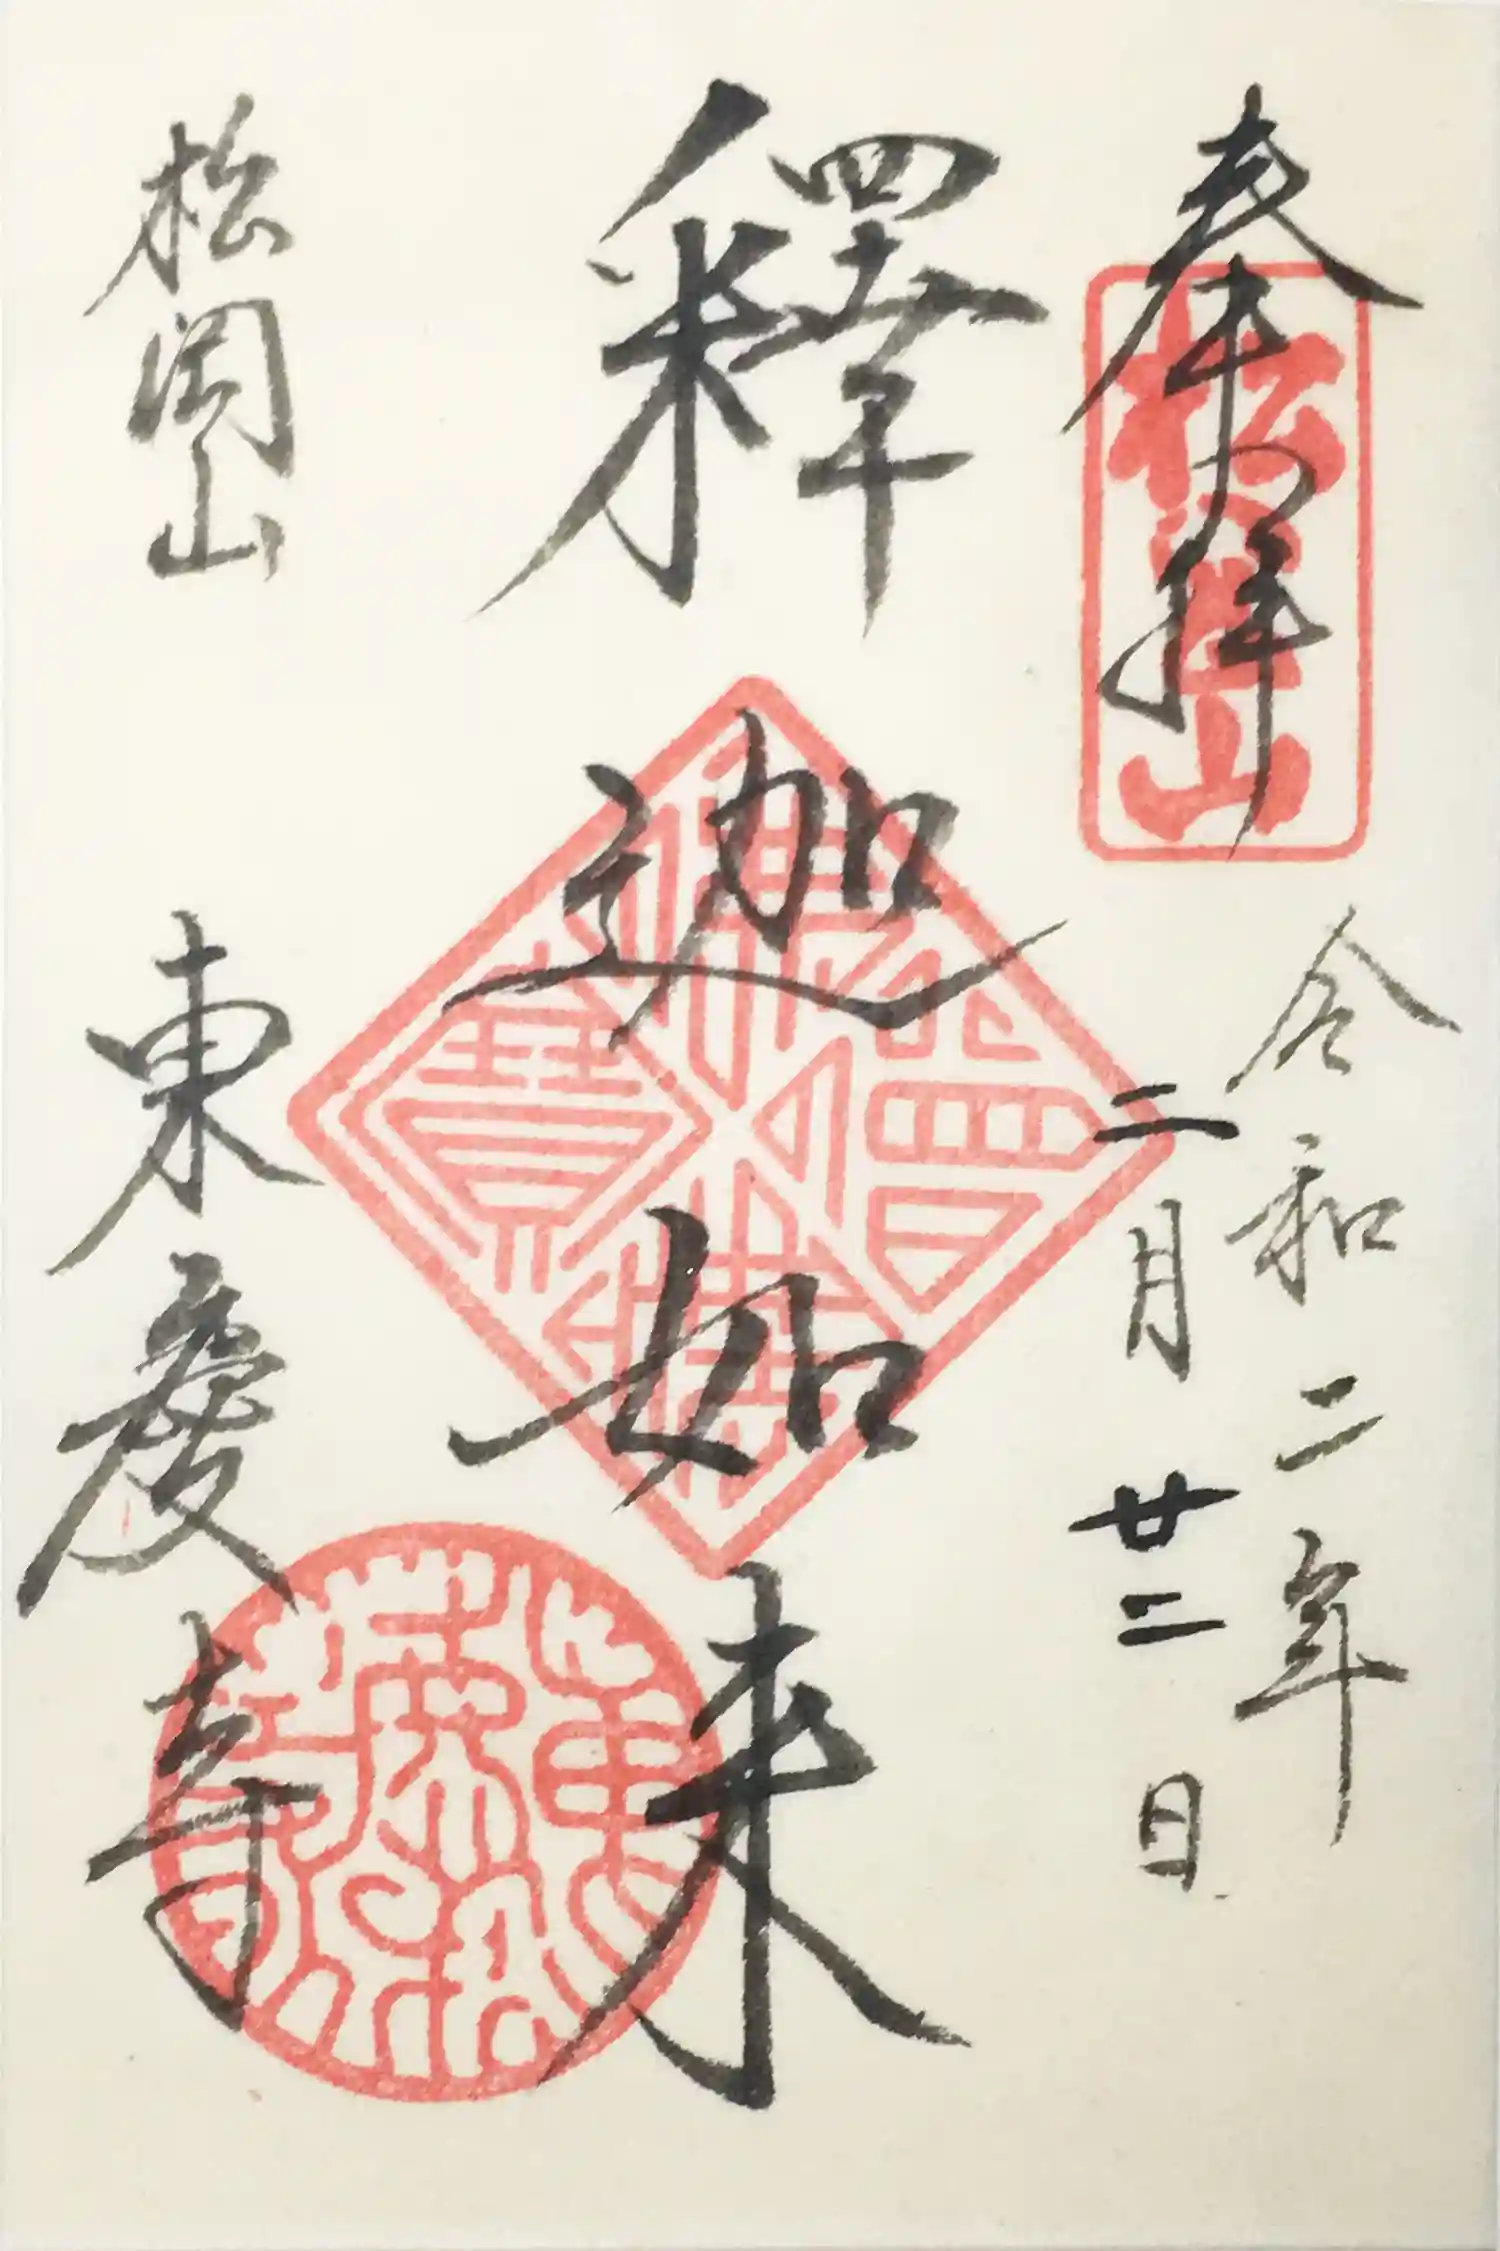 奉拝
松岡山
令和二年
二月廿二日
釋迦如来
佛法僧寶
松岡山
東慶寺